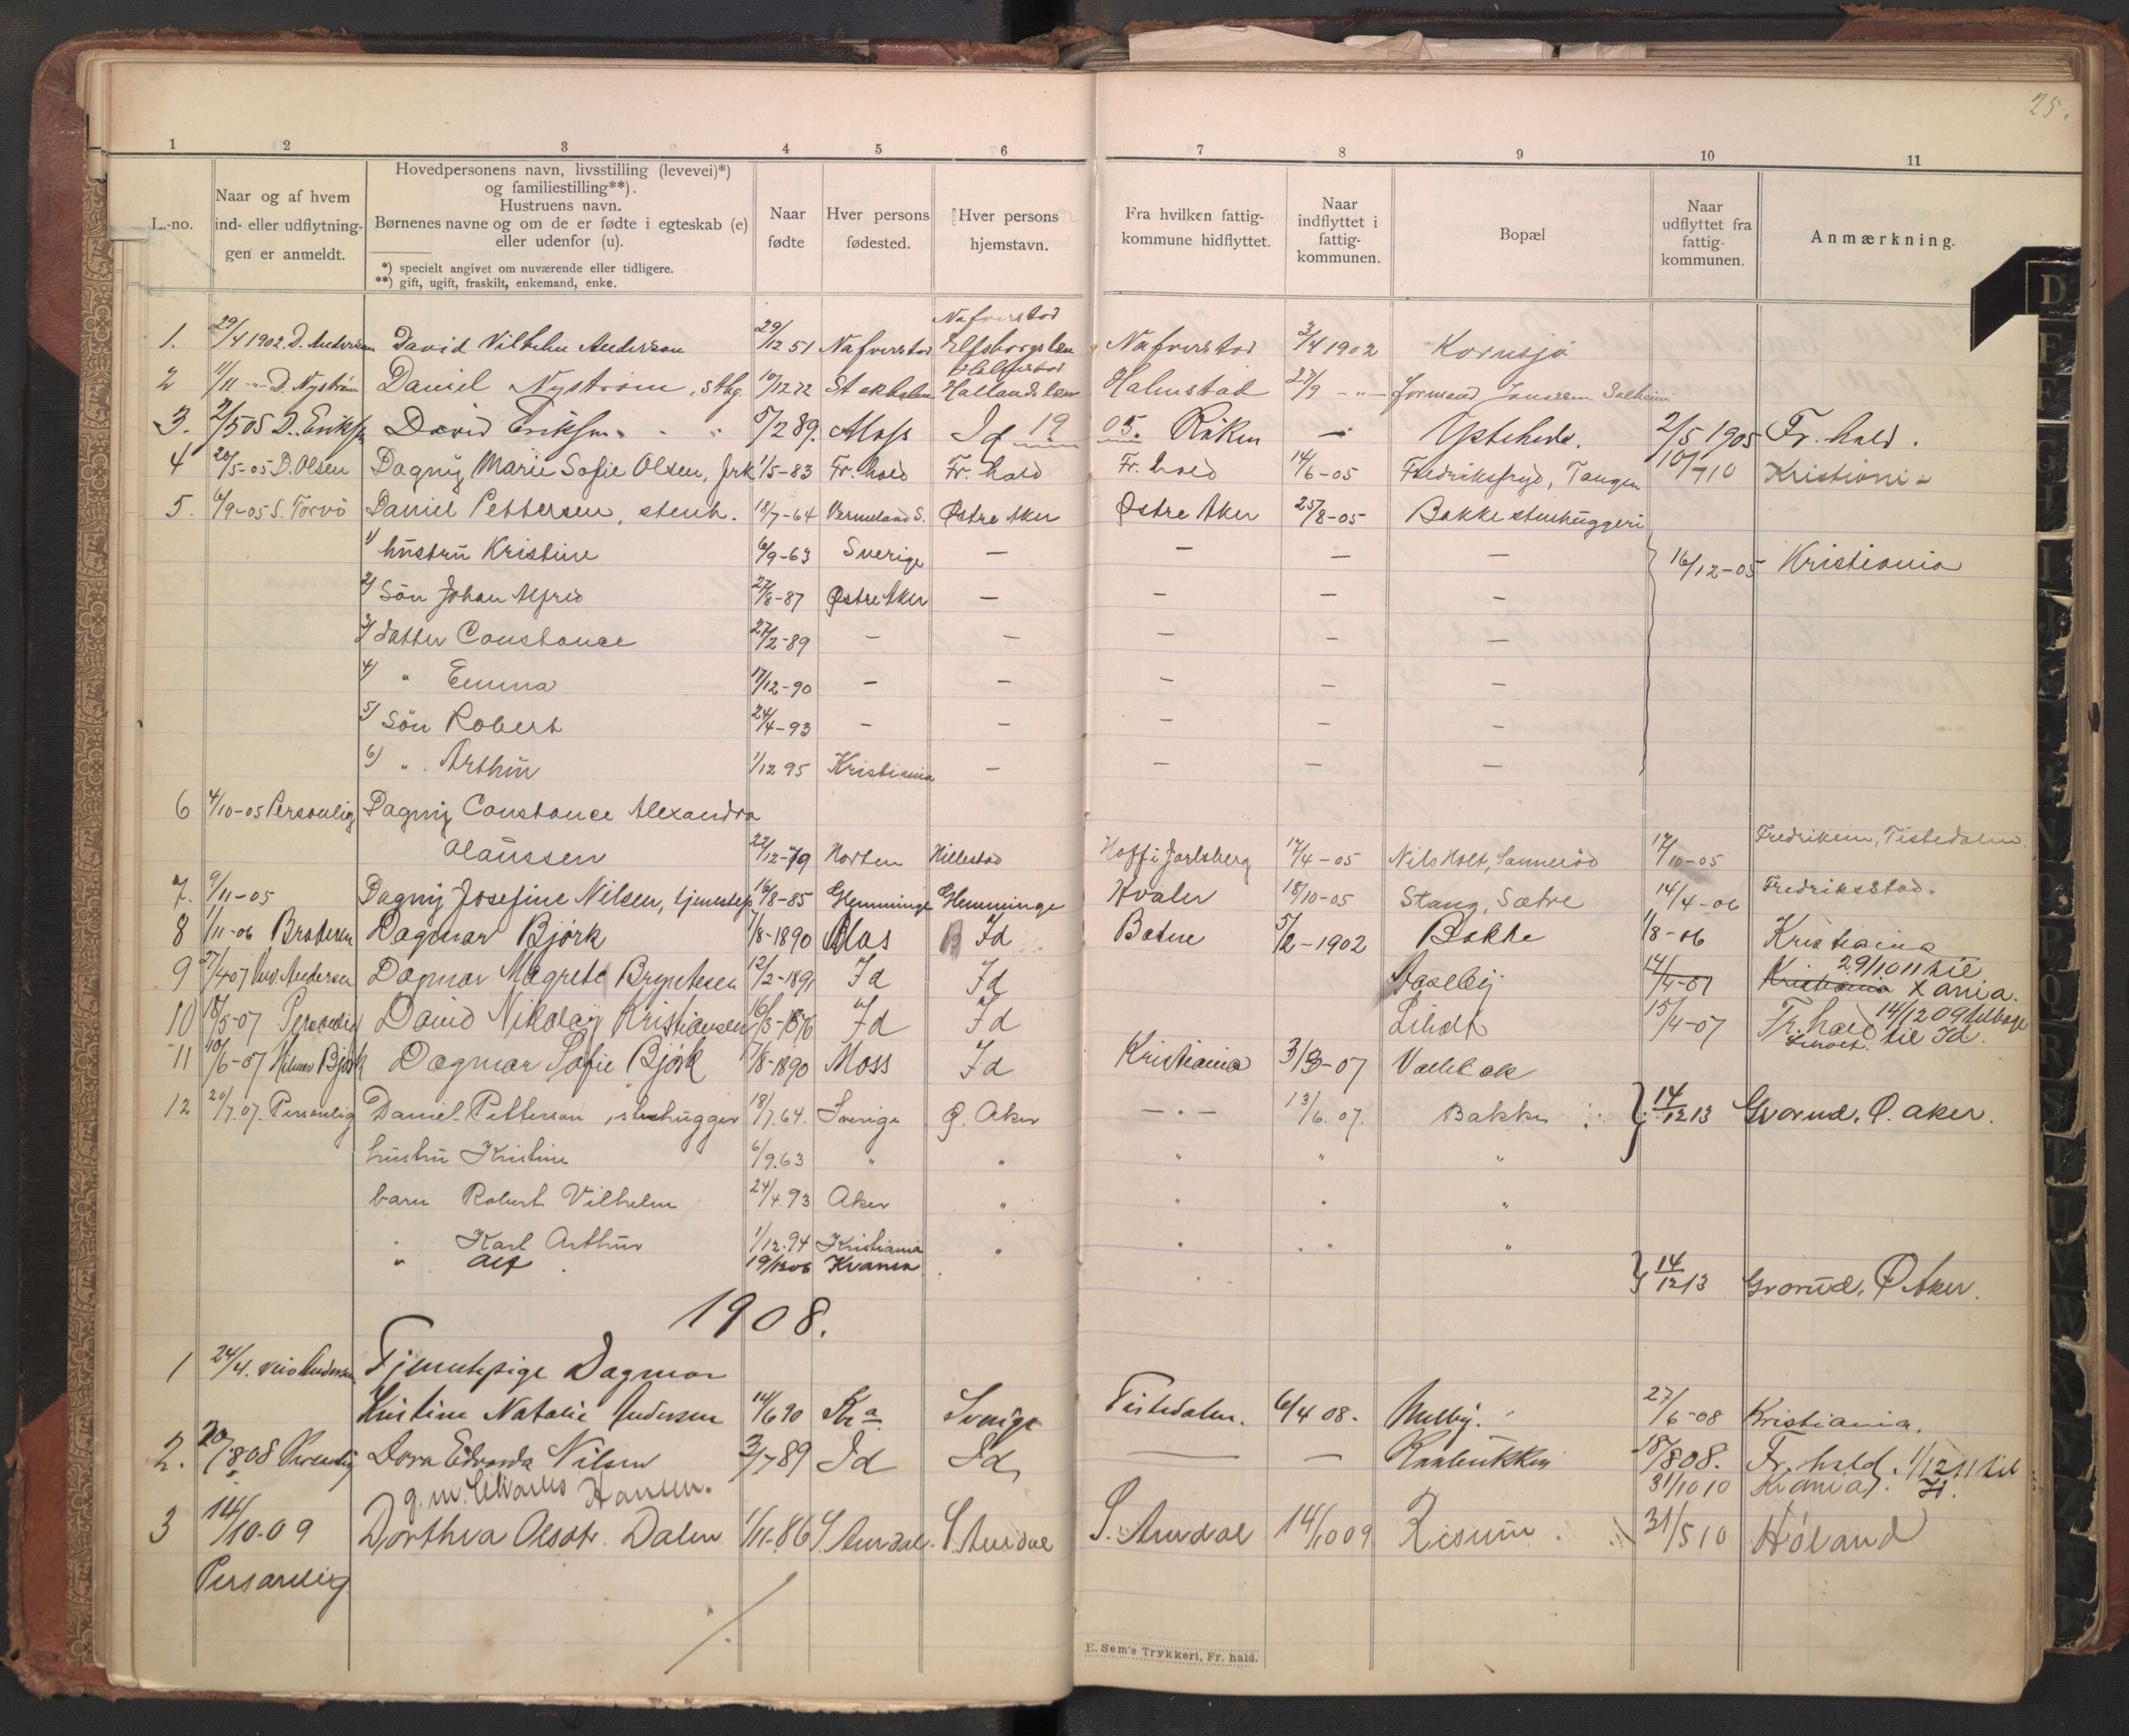 25.
1 2 3 4 5 6 7 8 9 10 11
L.-no.
Naar og af hvem
ind- eller udflytning-
gen er anmeldt.
Hovedpersonens navn, livsstilling (levevei)*)
og familiestilling**).
Hustruens navn.
Børnenes navne og om de er fødte i egteskab (e)
eller udenfor (u).
*) specielt angivet om nuværende eller tidligere.
**) gift, ugift, fraskilt, enkemand, enke.
Naar
fødte
Hver persons
fødested.
Hver persons
hjemstavn.
Fra hvilken fattig-
kommune hidflyttet.
Naar
indflyttet i
fattig-
kommunen.
Bopæl
Naar
udflyttet fra
fattig-
kommunen.
Anmærkning.
Nafverstad
1. 29/4 1902. D. Anderson David Vilhelm Anderson 29/12 51 Nafverstad Elfsborgslen Nafverstad 3/4 1902 Kornsjø
2 11/11 -"- D. Nyström Daniel Nyström, sthg. 10/12 72 Hallandslen Halmstad 27/9 -"- formand
3. 2/5 05 D. Eriksen David Eriksen 5/2 89. Moss Id 19 05. Röken — 2/5 1905 Fr. hald.
4 20/5-05 D. Olsen Dagny Marie Sofie Olsen, frk 1/5-83 Fr. hald Fr. hald Fr. hald 14/6-05 Fredriksfryd, Tangen 10/7 10 Kristiania
5. 6/9-05 S. Torvö Daniel Pettersen, stenh. 18/7-64 Vermeland S. Østre Aker Østre Aker 25/8-05 Bakke stenhuggeri
1) hustru Kristine 6/9-63 Sverige — — — — 16/12-05 Kristiania
2) Søn Johan Alfred 27/8-87 Østre Aker — — — —
3) datter Constance 27/2-89 — — — — —
4) " Emma 17/12-90 — — — — —
5) Søn Robert 24/4-93 — — — — —
6) " Arthur 1/12 95 Kristiania — — — —
6 4/10-05 Personlig Dagny Constance Alexandra
Olaussen 22/12-79 Horten Hillestad Hoff i Jarlsberg 17/4-05 Nils Holt, Sannerød 17/10-05 Fredriksen, Tistedalen
7. 9/11-05 Dagny Josefine Nilsen, tjenestep 16/8-85 Glemminge Glemminge Hvaler 18/10-05 Stang, Sætre 14/4-06 Fredriksstad.
8 1/11-06 Brateren Dagmar Björk 1/8-1890 Mos Id 5/2-1902 Bakke 1/8-06 Kristiania
9 27/4 07 Andersen Dagmar Magrete 12/2-1891 Id Id Aaselby 14/4-07 Kristiania 29/10 11 til
X ania.
10 18/5-07 Personlig David Nikolay Kristiansen 16/3-1876 Id Id Liholt 15/4-07 Fr. hald 14/12 09 tilbage
til Id.
Liholt.
11 10/6-07 Hilmer Björk Dagmar Sofie Björk 1/8-1890 Moss Id Kristiania 3/3-07
12 20/7.07. Personlig Daniel Petterson, stenhugger 18/7.64. Sverige Ø. Aker — " — 13/6.07. Bakke 14/12 13 Grorud, Ø. aker.
hustru Kristine 6/9.63 " " " " "
barn Robert Vilhelm 24/4.93 Aker " " " "
" Karl Arthur 1/12.94 Kristiania " " " "
" Alf 19/12 06 Kvania 14/12 13 Grorud, Ø Aker.
1908.
1 24/4. Andersen Tjenestepige Dagmar
Kristine Natalie Andersen 14/6 90 Kra Sverige Tistedalen. 6/4 08. Melby. 27/6-08 Kristiania.
2. 20/8 08 Personlig Dora Edvarda Nilsen 3/7 89 Id Id — — 18/8 08. Fr. hald. 1/12 11 til
g.m. Hansen. 31/10 10 Kvania). Id.
3 14/10-09 Dorthea Olsdtr. Dalen 1/11-86 S. Aurdal. S. Aurdal S. Aurdal 14/10 09 Risum 31/5 10 Høland
Personlig
E. Sem's Trykkeri, Fr. hald.
D
E
F